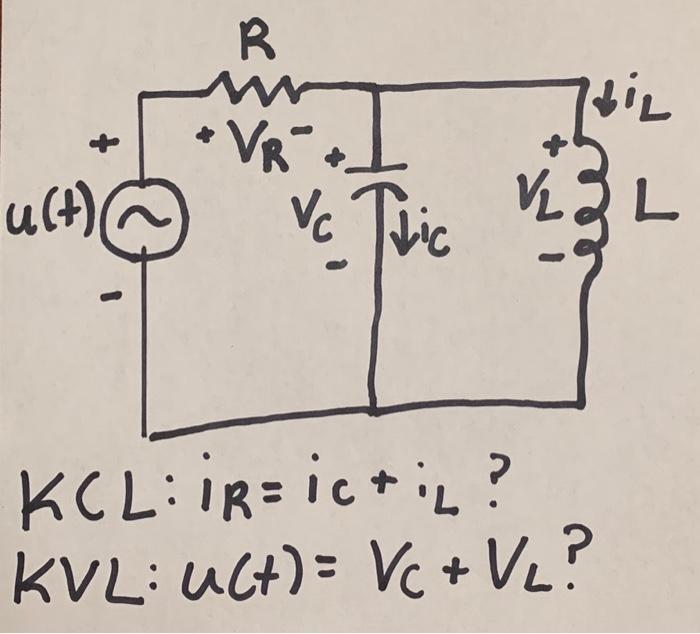 R
+ VR -
+
u(t)
-
+
VC
-
↓iC
↓iL
+
VL
-
L
KCL: iR = iC + iL?
KVL: u(t) = VC + VL?